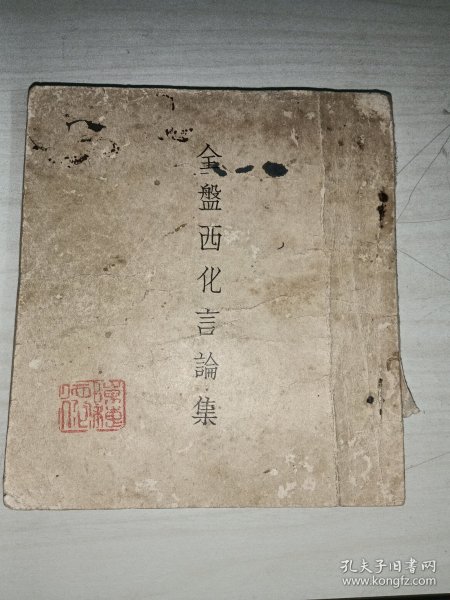 全盤西化言論集
孔夫子旧书网
www.kongfz.com